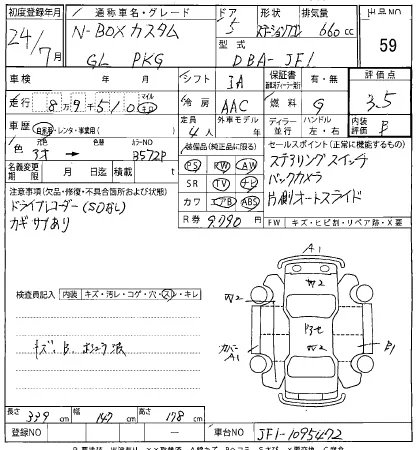 初度登録年月 通称車名・グレード ドア 形状 排気量 出品NO
24/7月 N-BOXカスタム 5 ステーションワゴン 660cc 59
GL PKG 型式 DBA-JF1
車検 年 月 シフト IA 保証書 有・無 評価点
走行 89510 マイル キロ 冷房 AAC 燃料 G 3.5
車歴 自家用・レンタ・事業用( ) 定員 4人 外車モデル 年 ディーラー 並行 ハンドル 左・右 内装評価 B
色 元色 色替 カラーNO
B572P
装備品(純正品に限る) セールスポイント(正常に機能するもの)
名義変更期限 月 日迄 積載 kg
PS PW AW ステアリングスイッチ
SR TV ナビ バックカメラ
注意事項(欠品・修復・不具合箇所および状態)
カワ エアB ABS 片側オートスライド
ドライブレコーダー(SDなし)
R券 9,790円
カギサブあり
FW キズ・ヒビ割・リペア跡・X要
検査員記入 内装 キズ・汚レ・コゲ・穴・スレ・キレ
A1
W2
カバーA1
B1
キズ、B、
長さ 339cm 幅 147cm 高さ 178cm
登録NO 車台NO JF1-1095472